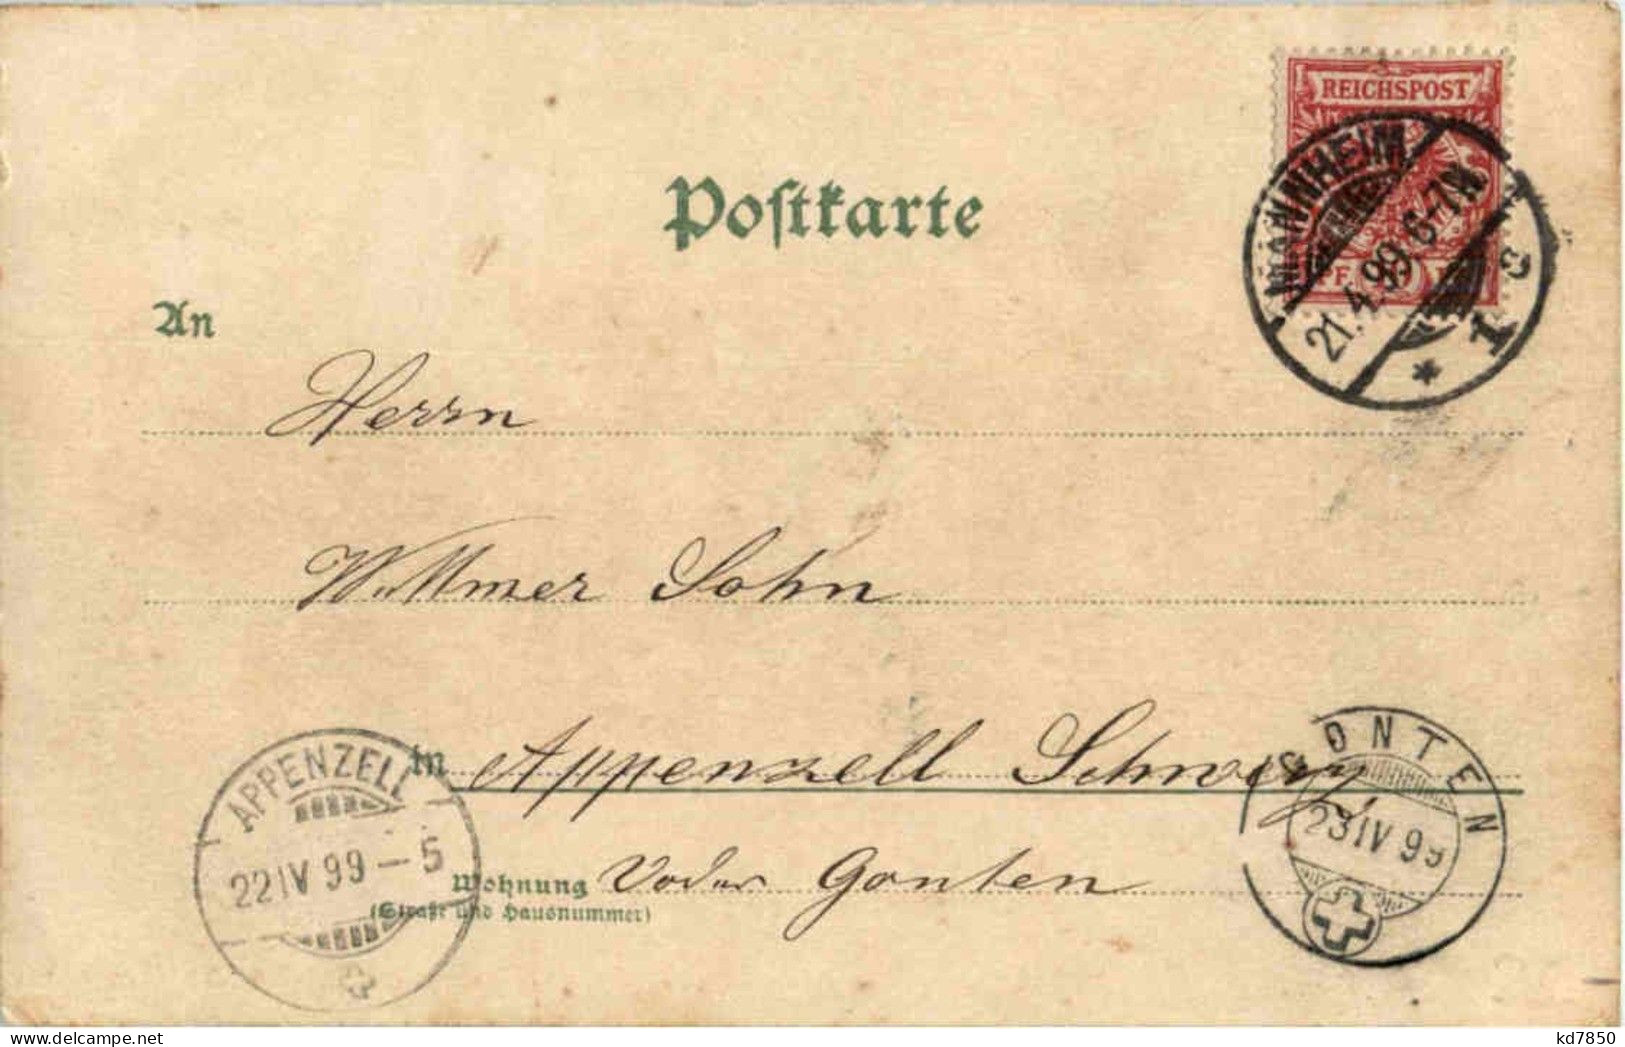 REICHSPOST
MANNHEIM
21.4.99 6-7N.
* 1 c
Postkarte
An
Herrn
Wittmer Sohn
in Appenzell Schweiz
Wohnung
(Straße und Hausnummer)
Gonten
APPENZELL
22 IV 99 – 5
GONTEN
23 IV 99
kd7850